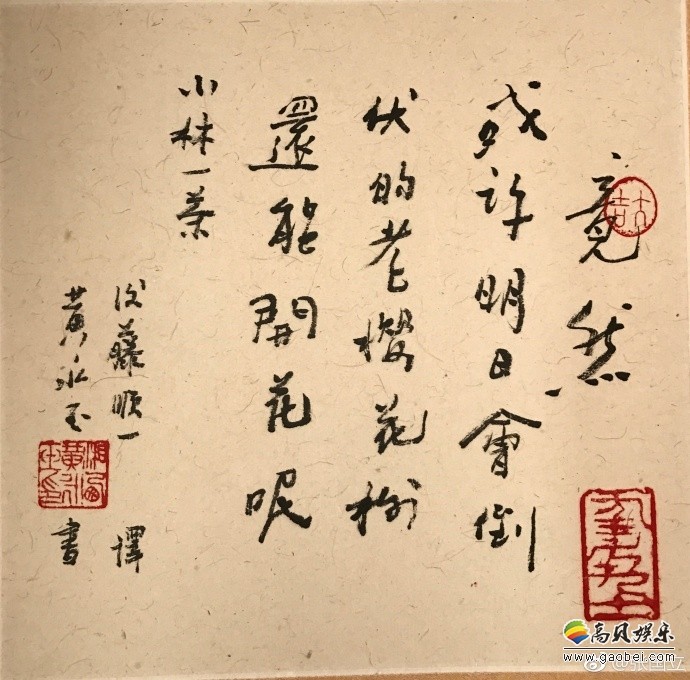 竟然
或許明日會倒
伏的老櫻花樹
還能開花呢
小林一茶
後藤順一 譯
黃永玉 書
高贝娱乐
www.gaobei.com
@张国立